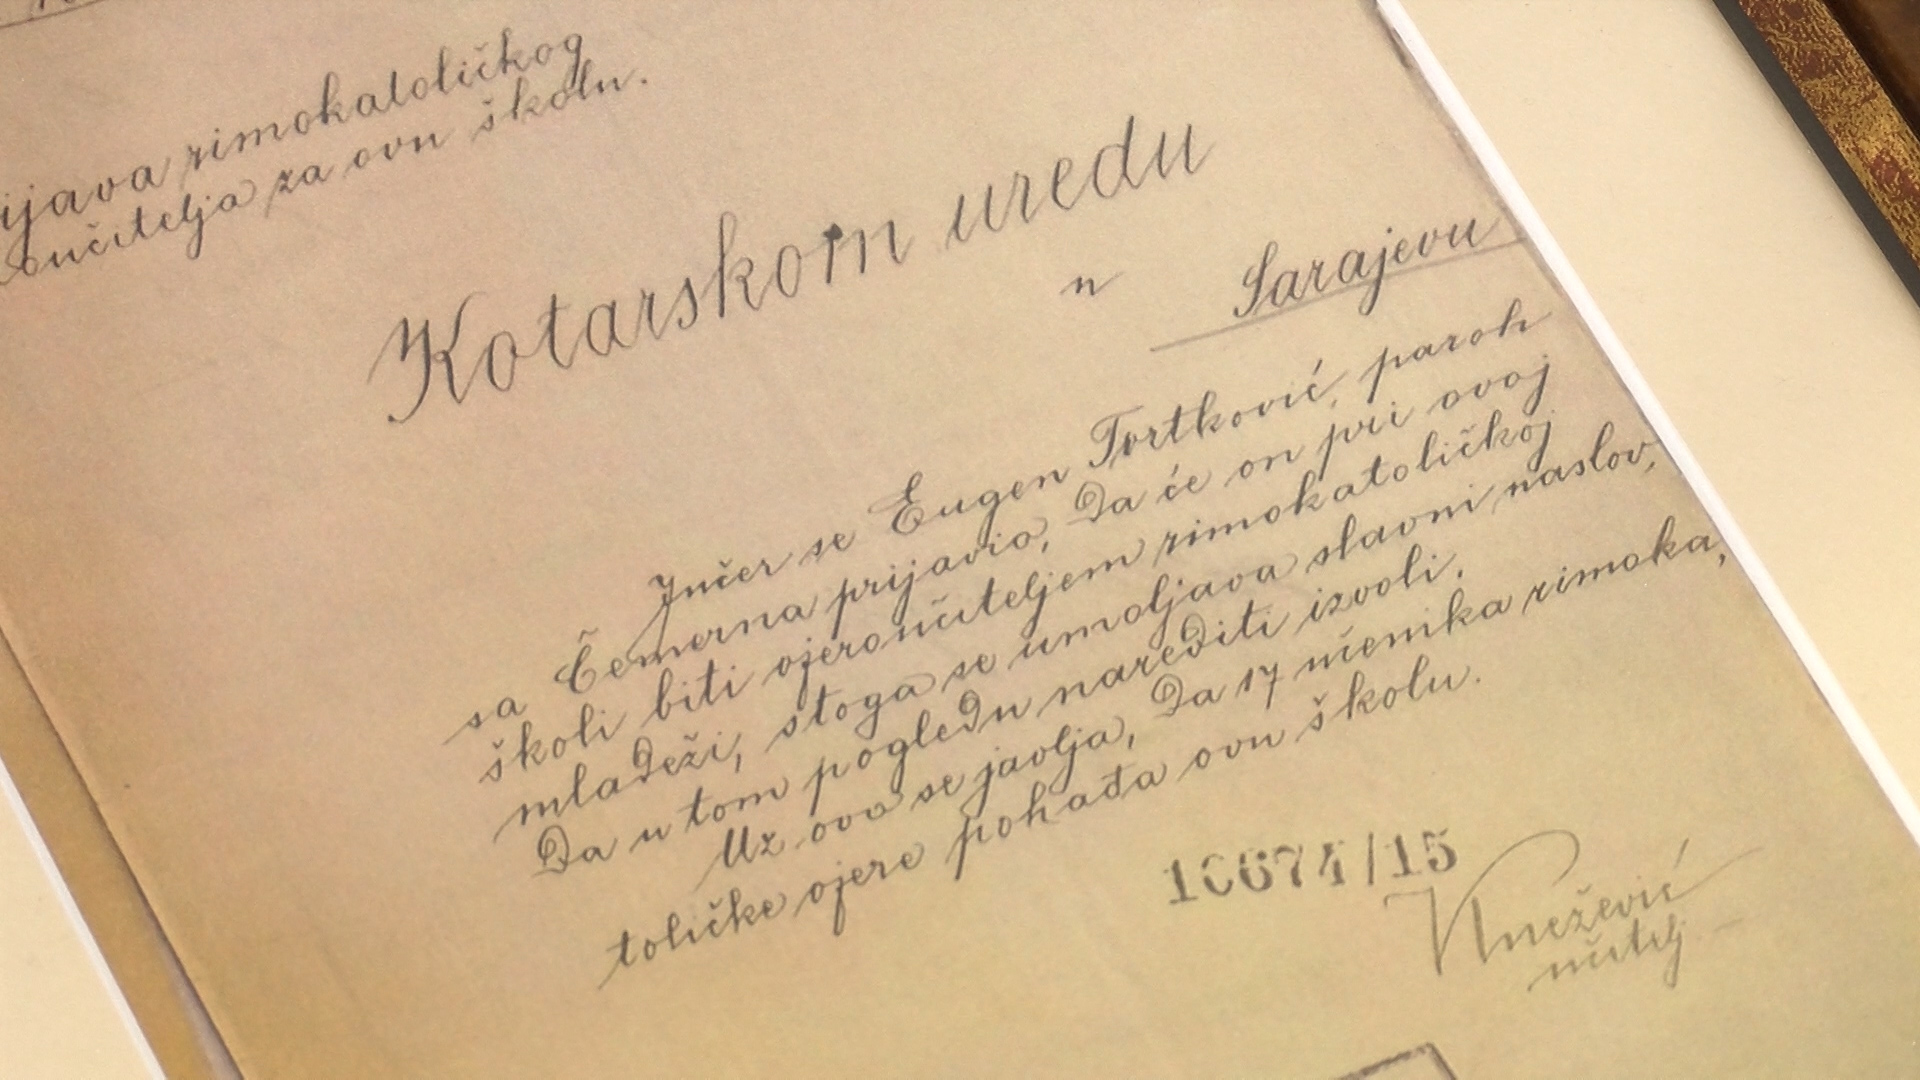 ijava rimokatoličkog
oučitelja za ovu školu.
Kotarskom uredu
u Sarajevu
Jučer se Eugen Tvrtković, paroh
sa Čemerna prijavio, da će on pri ovoj
školi biti vjeroučiteljem rimokatoličkoj
mladeži, stoga se umoljava slavni naslov,
da u tom pogledu narediti izvoli.
Uz ovo se javlja, da 17 učenika rimoka,
toličke vjere pohađa ovu školu.
10674/15
Knežević
učitelj